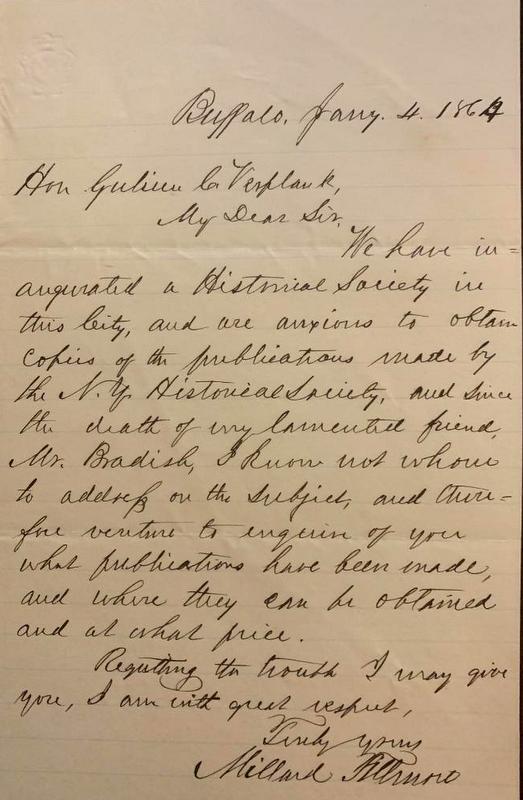 Buffalo, Jany. 4. 1864
Hon Gulien C Verplank,
My Dear Sir,
We have in=
augurated a Historical Society in
this City, and are anxious to obtain
copies of the publications made by
the N.Y. Historical Society, and since
the death of my lamented friend,
Mr. Bradish, I know not whom
to address on the subject, and there=
fore venture to enquire of you
what publications have been made,
and where they can be obtained
and at what price.
Regretting the trouble I may give
you, I am with great respect,
Truly yours
Millard Fillmore